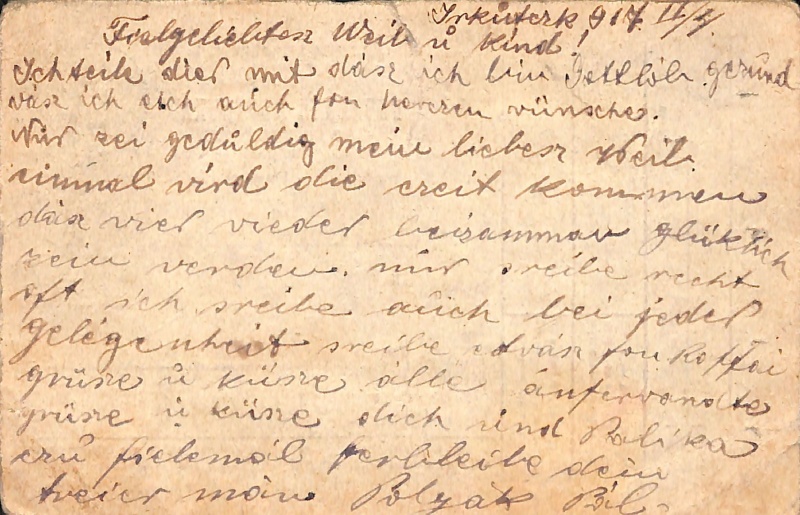 Irkutszk 917 II/4.
Fielgeliebtesz Weib ŭ kind!
Ich teile dier mit dász ich bin Gottlob gezŭnd
vász ich eich auch fon herzen vünsche.
Nŭr zei gedŭldig mein liebesz Weib.
einmal vird die czeit kommen
dász vier vieder beizamman glüklich
zein verden. nŭr sreibe recht
oft ich sreibe aŭch bei jeder
gelegenheit sreibe etvász fon
grüsze ŭ küsze álle ánfervandte
grüsze ŭ küsze dich ŭnd Palika
czŭ fielemál ferbleibe dein
treier mán Polyák Pál